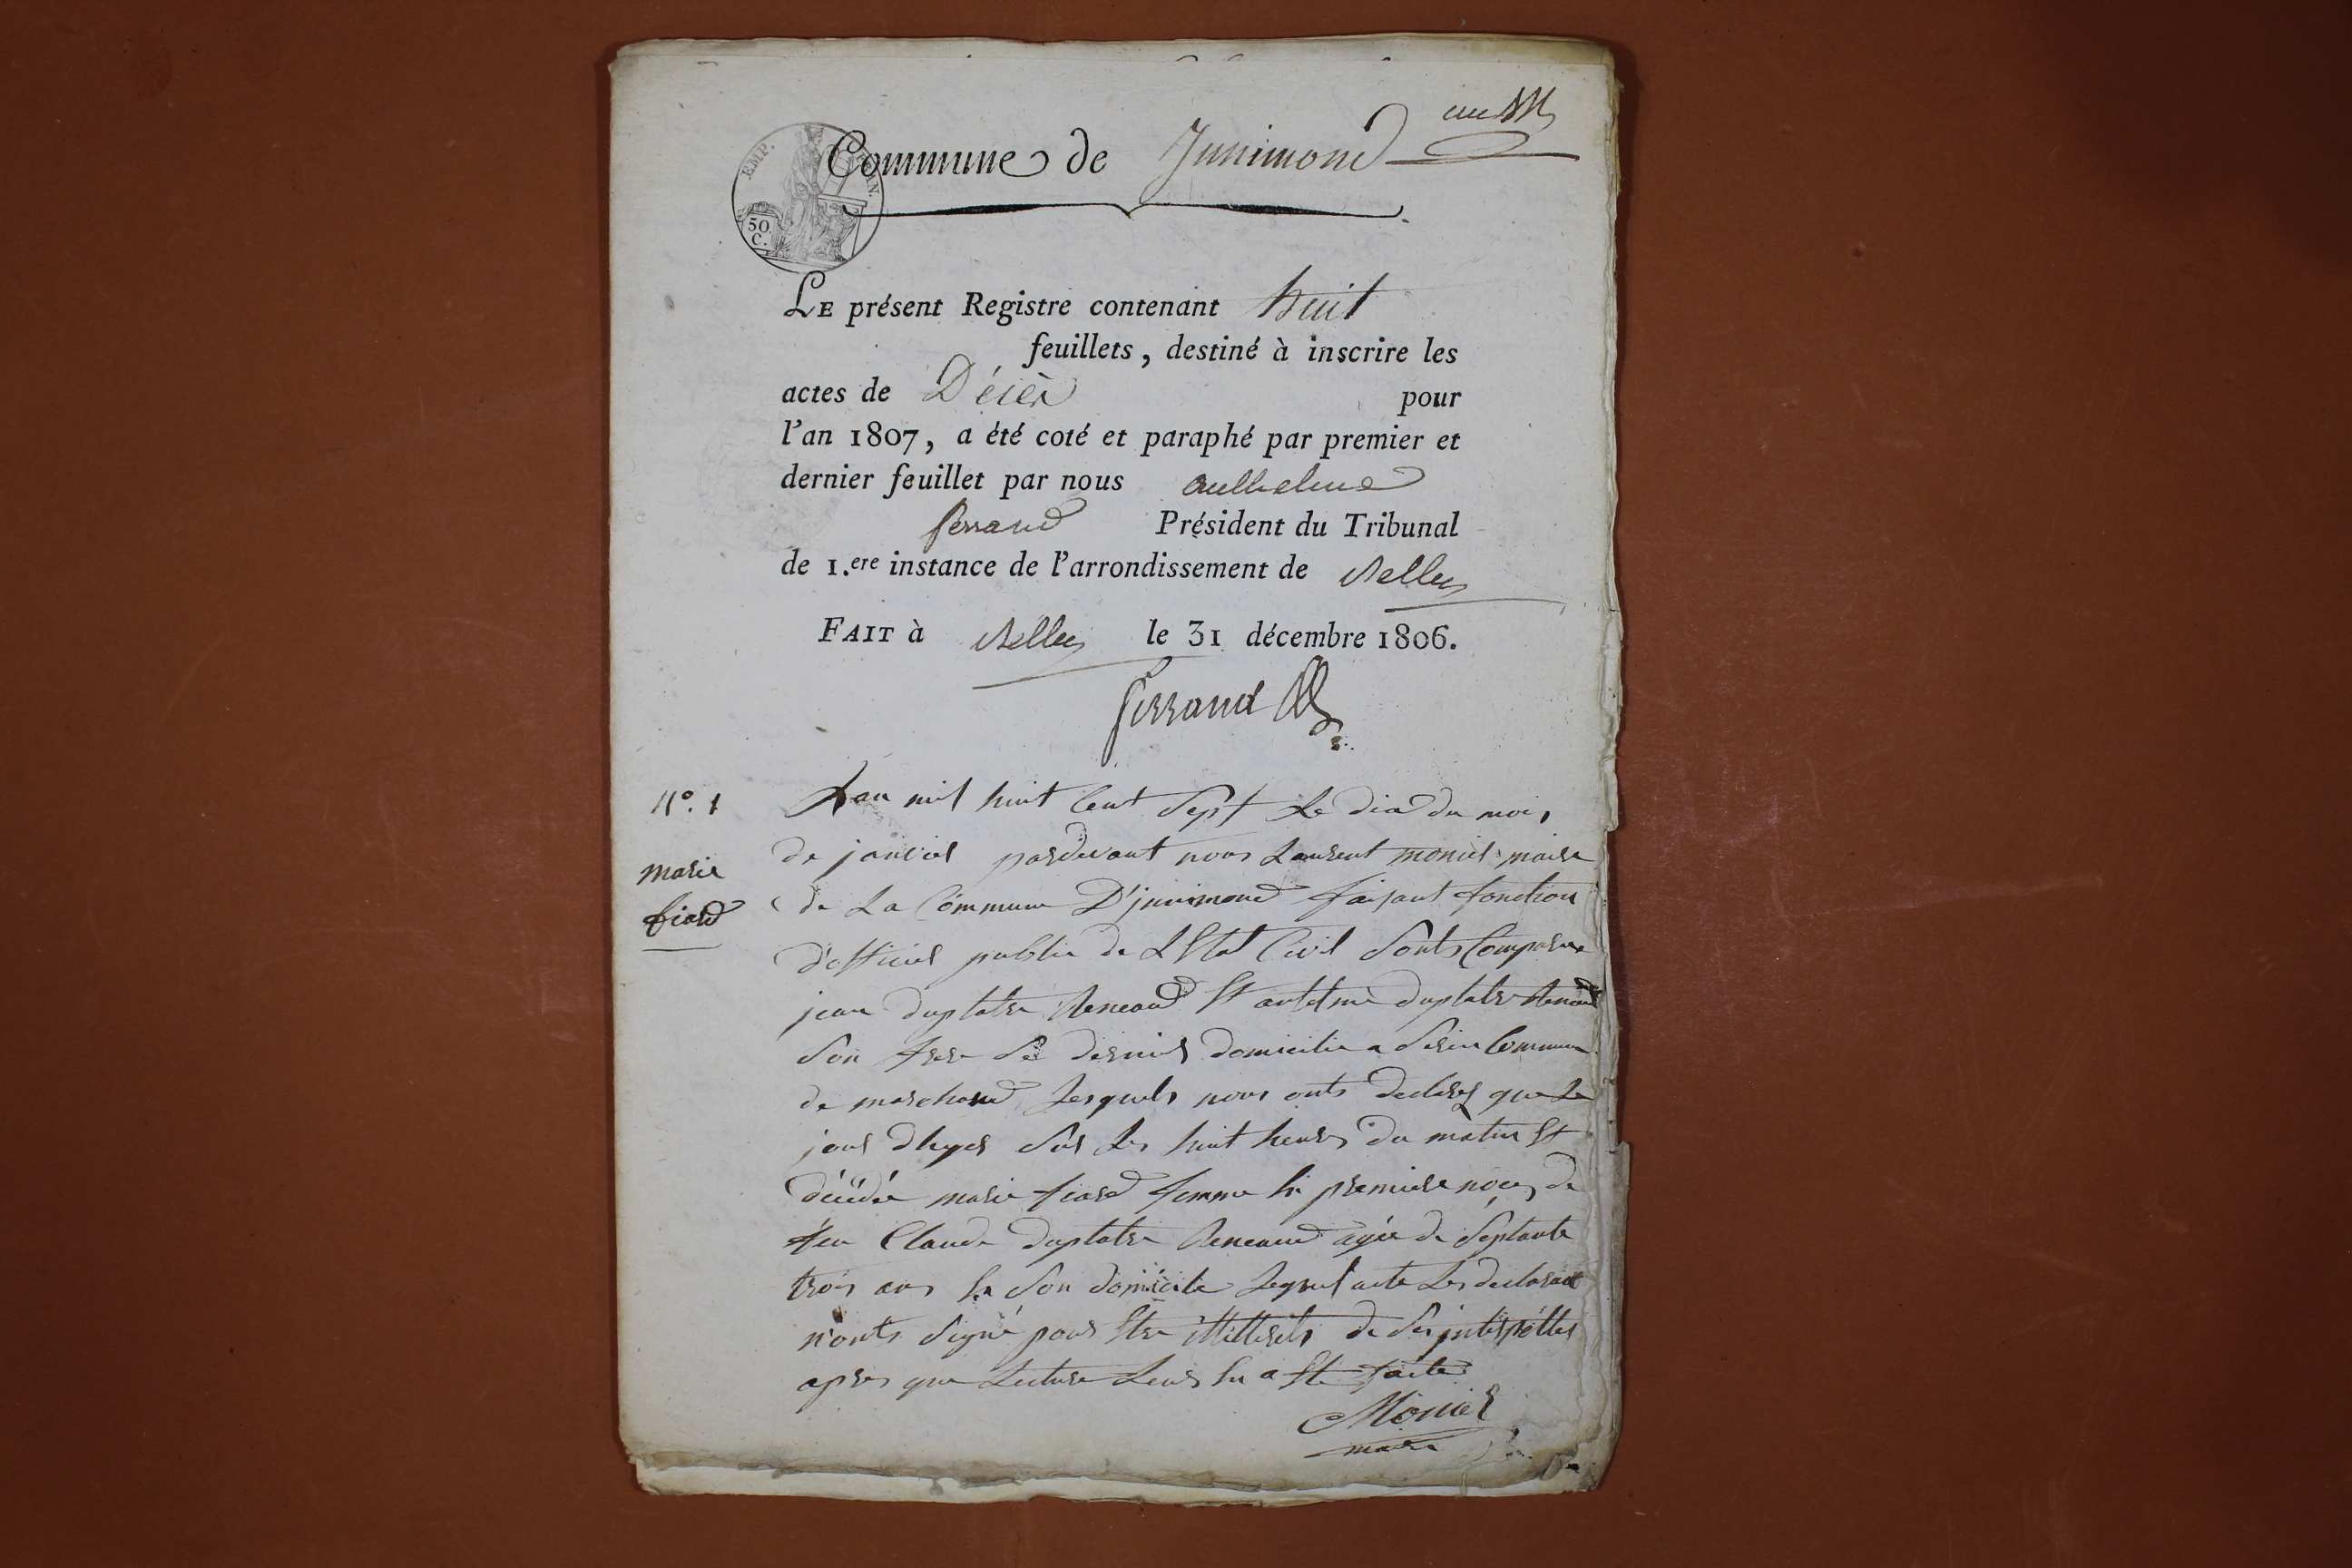 une
Commune de Junimond
EMP.
50
C.
LE présent Registre contenant huit
feuillets, destiné à inscrire les
actes de Décès pour
l'an 1807, a été coté et paraphé par premier et
dernier feuillet par nous anthelme
ferrand Président du Tribunal
de 1.ere instance de l'arrondissement de Belley
FAIT à Belley le 31 décembre 1806.
ferrand
N°. 1
marie
fiard
L'an mil huit Cent Sept Le dix du mois
de janvier pardevant nous Laurent monier maire
de La Commune D'junimond faisant fonction
d'officier public de L'Etat Civil Sonts Comparus
jean duplatre Reneaud Et antelme duplatre Renaud
Son frere Le dernier domicilie a Commune
de marchand Lesquels nous onts declarez que Le
jour dhyer Sur Les huit heures du matin Et
décédée marie fiard femme En premiere noces de
feu Claude duplatre Reneaud agée de Séptante
trois ans En Son domicile Lequel acte Les declarant
n'onts Signé pour Etre illitterets de Ses
apres que Lecture Leur En a Ete faite
Monier
maire